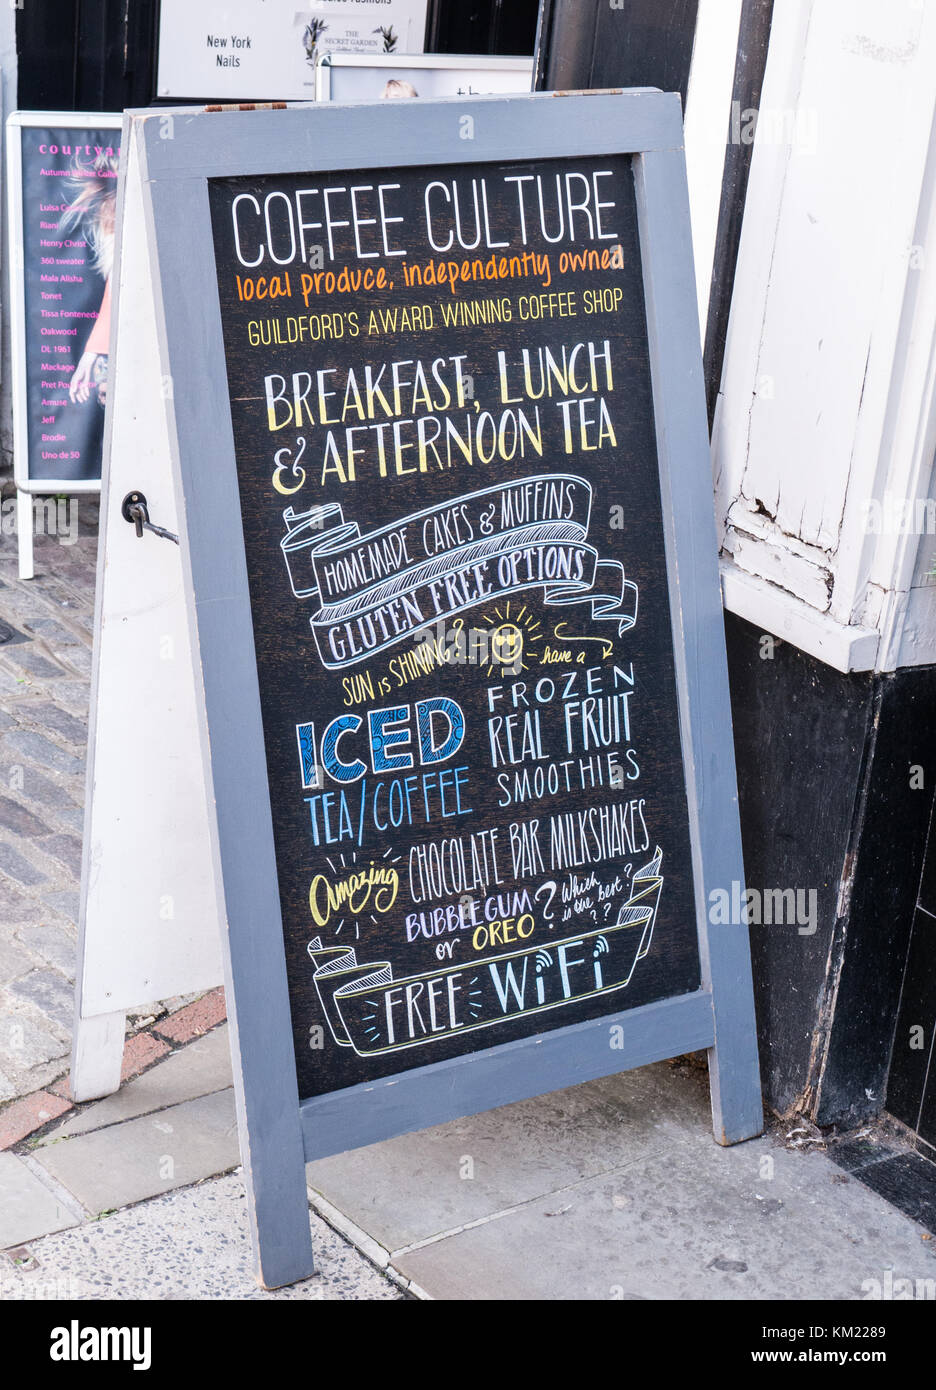 New York
Nails
THE
SECRET GARDEN
the
Autumn Winter
Luisa
Riani
Henry Christ
360 sweater
Mala Alisha
Tonet
Tissa Fonteneda
Oakwood
DL 1961
Mackage
Pret
Amuse
Jeff
Brodie
Uno de 50
COFFEE CULTURE
local produce, independently owned
GUILDFORD'S AWARD WINNING COFFEE SHOP
BREAKFAST, LUNCH
& AFTERNOON TEA
HOMEMADE CAKES & MUFFINS
GLUTEN FREE OPTIONS
SUN is SHINING?... have a
ICED
TEA/COFFEE
FROZEN
REAL FRUIT
SMOOTHIES
Amazing CHOCOLATE BAR MILKSHAKES
BUBBLEGUM
or OREO ? Which
is the best?
? ?
FREE WiFi
alamy
Image ID: KM2289
www.alamy.com